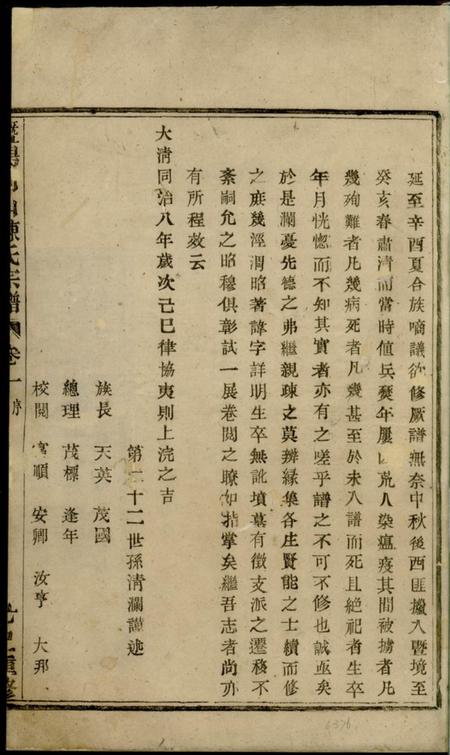 延至辛酉夏合族啇議欲修厥譜無奈中秋後西匪擾入暨境至
癸亥春肅清而當時値兵燹年屢凶荒人染瘟疫其間被擄者凡
幾殉難者凡幾病死者凡幾甚至於未入譜而死且絶祀者生卒
年月恍惚而不知其實者亦有之嗟乎譜之不可不修也誠亟矣
於是瀾憂先德之弗繼親疎之莫辨縁集各庄賢能之士續而修
之庶幾涇渭昭著諱字詳明生卒無訛墳墓有徵支派之遷移不
紊嗣允之昭穆俱彰試一展卷閱之瞭如指掌矣繼吾志者尚亦
有所程效云
大清同治八年歲次己巳律協夷則上浣之吉
第二十二世孫淸瀾謹述
族長 天英 茂國
總理 茂標 逢年
校閱 富順 安卿 汝亨 大邦
陳氏宗譜 卷一 序
重修